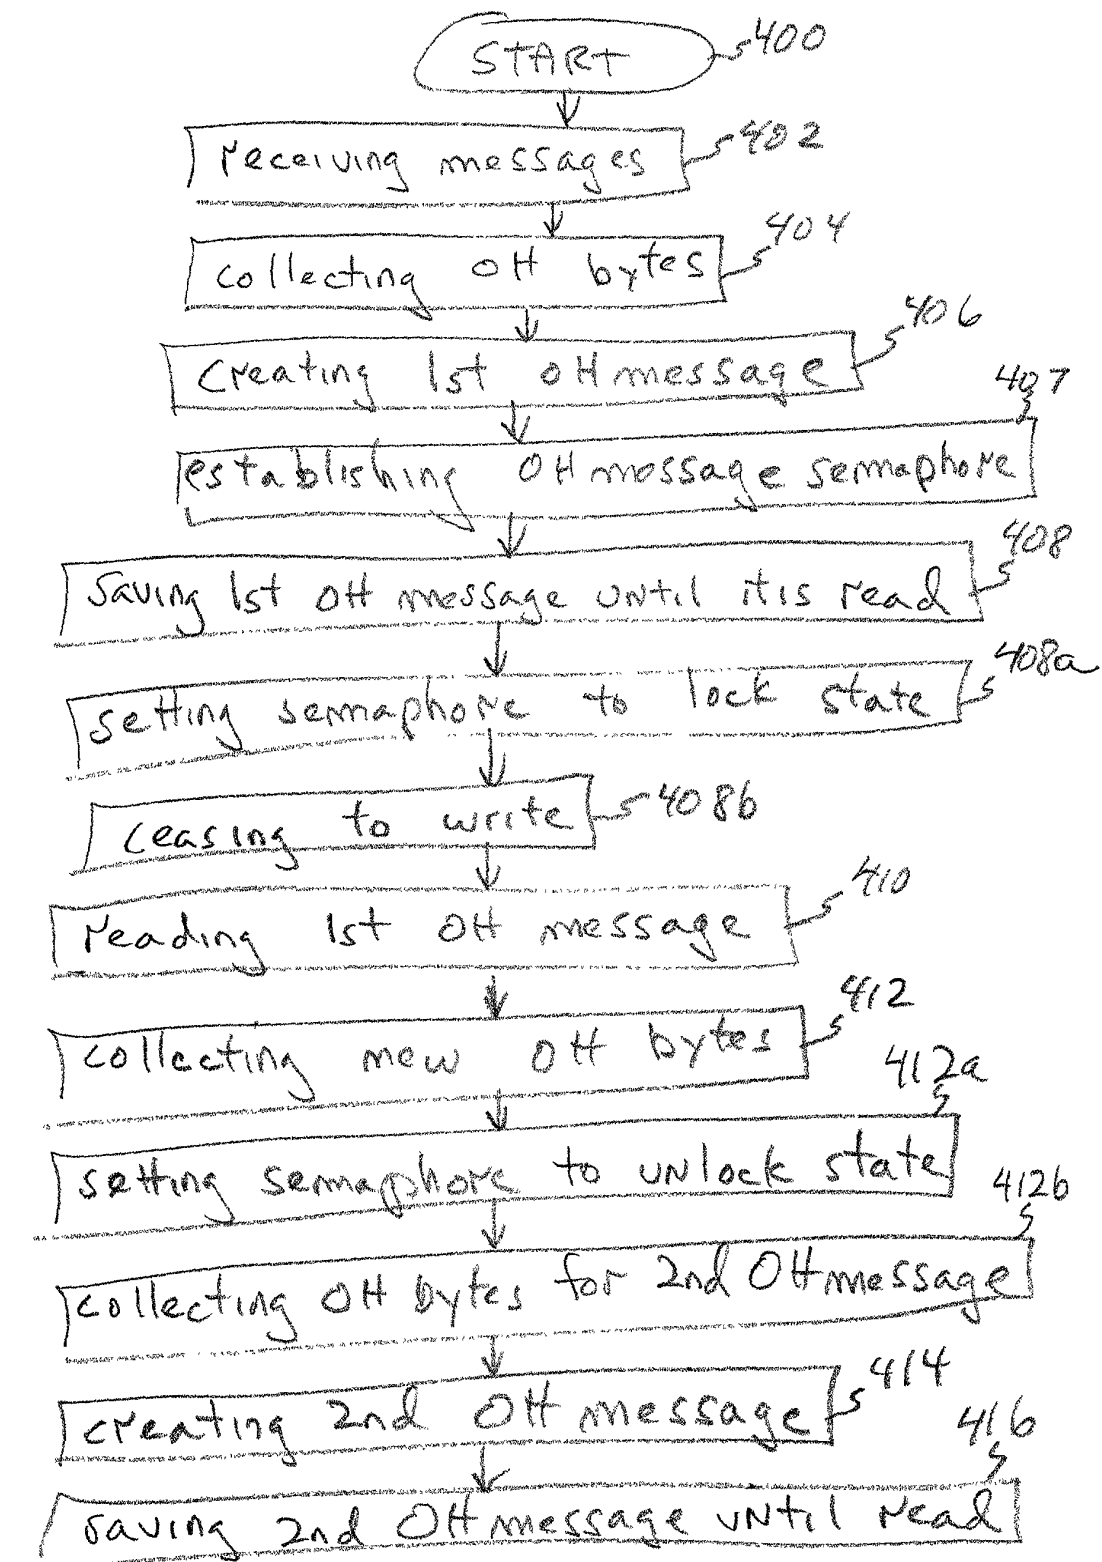 START 400
receiving messages 402
collecting OH bytes 404
creating 1st OH message 406
407
establishing OH message semaphore
408
saving 1st OH message until it is read
408a
setting semaphore to lock state
ceasing to write 408b
410
reading 1st OH message
412
collecting new OH bytes
412a
setting semaphore to unlock state
412b
collecting OH bytes for 2nd OH message
414
creating 2nd OH message
416
saving 2nd OH message until read